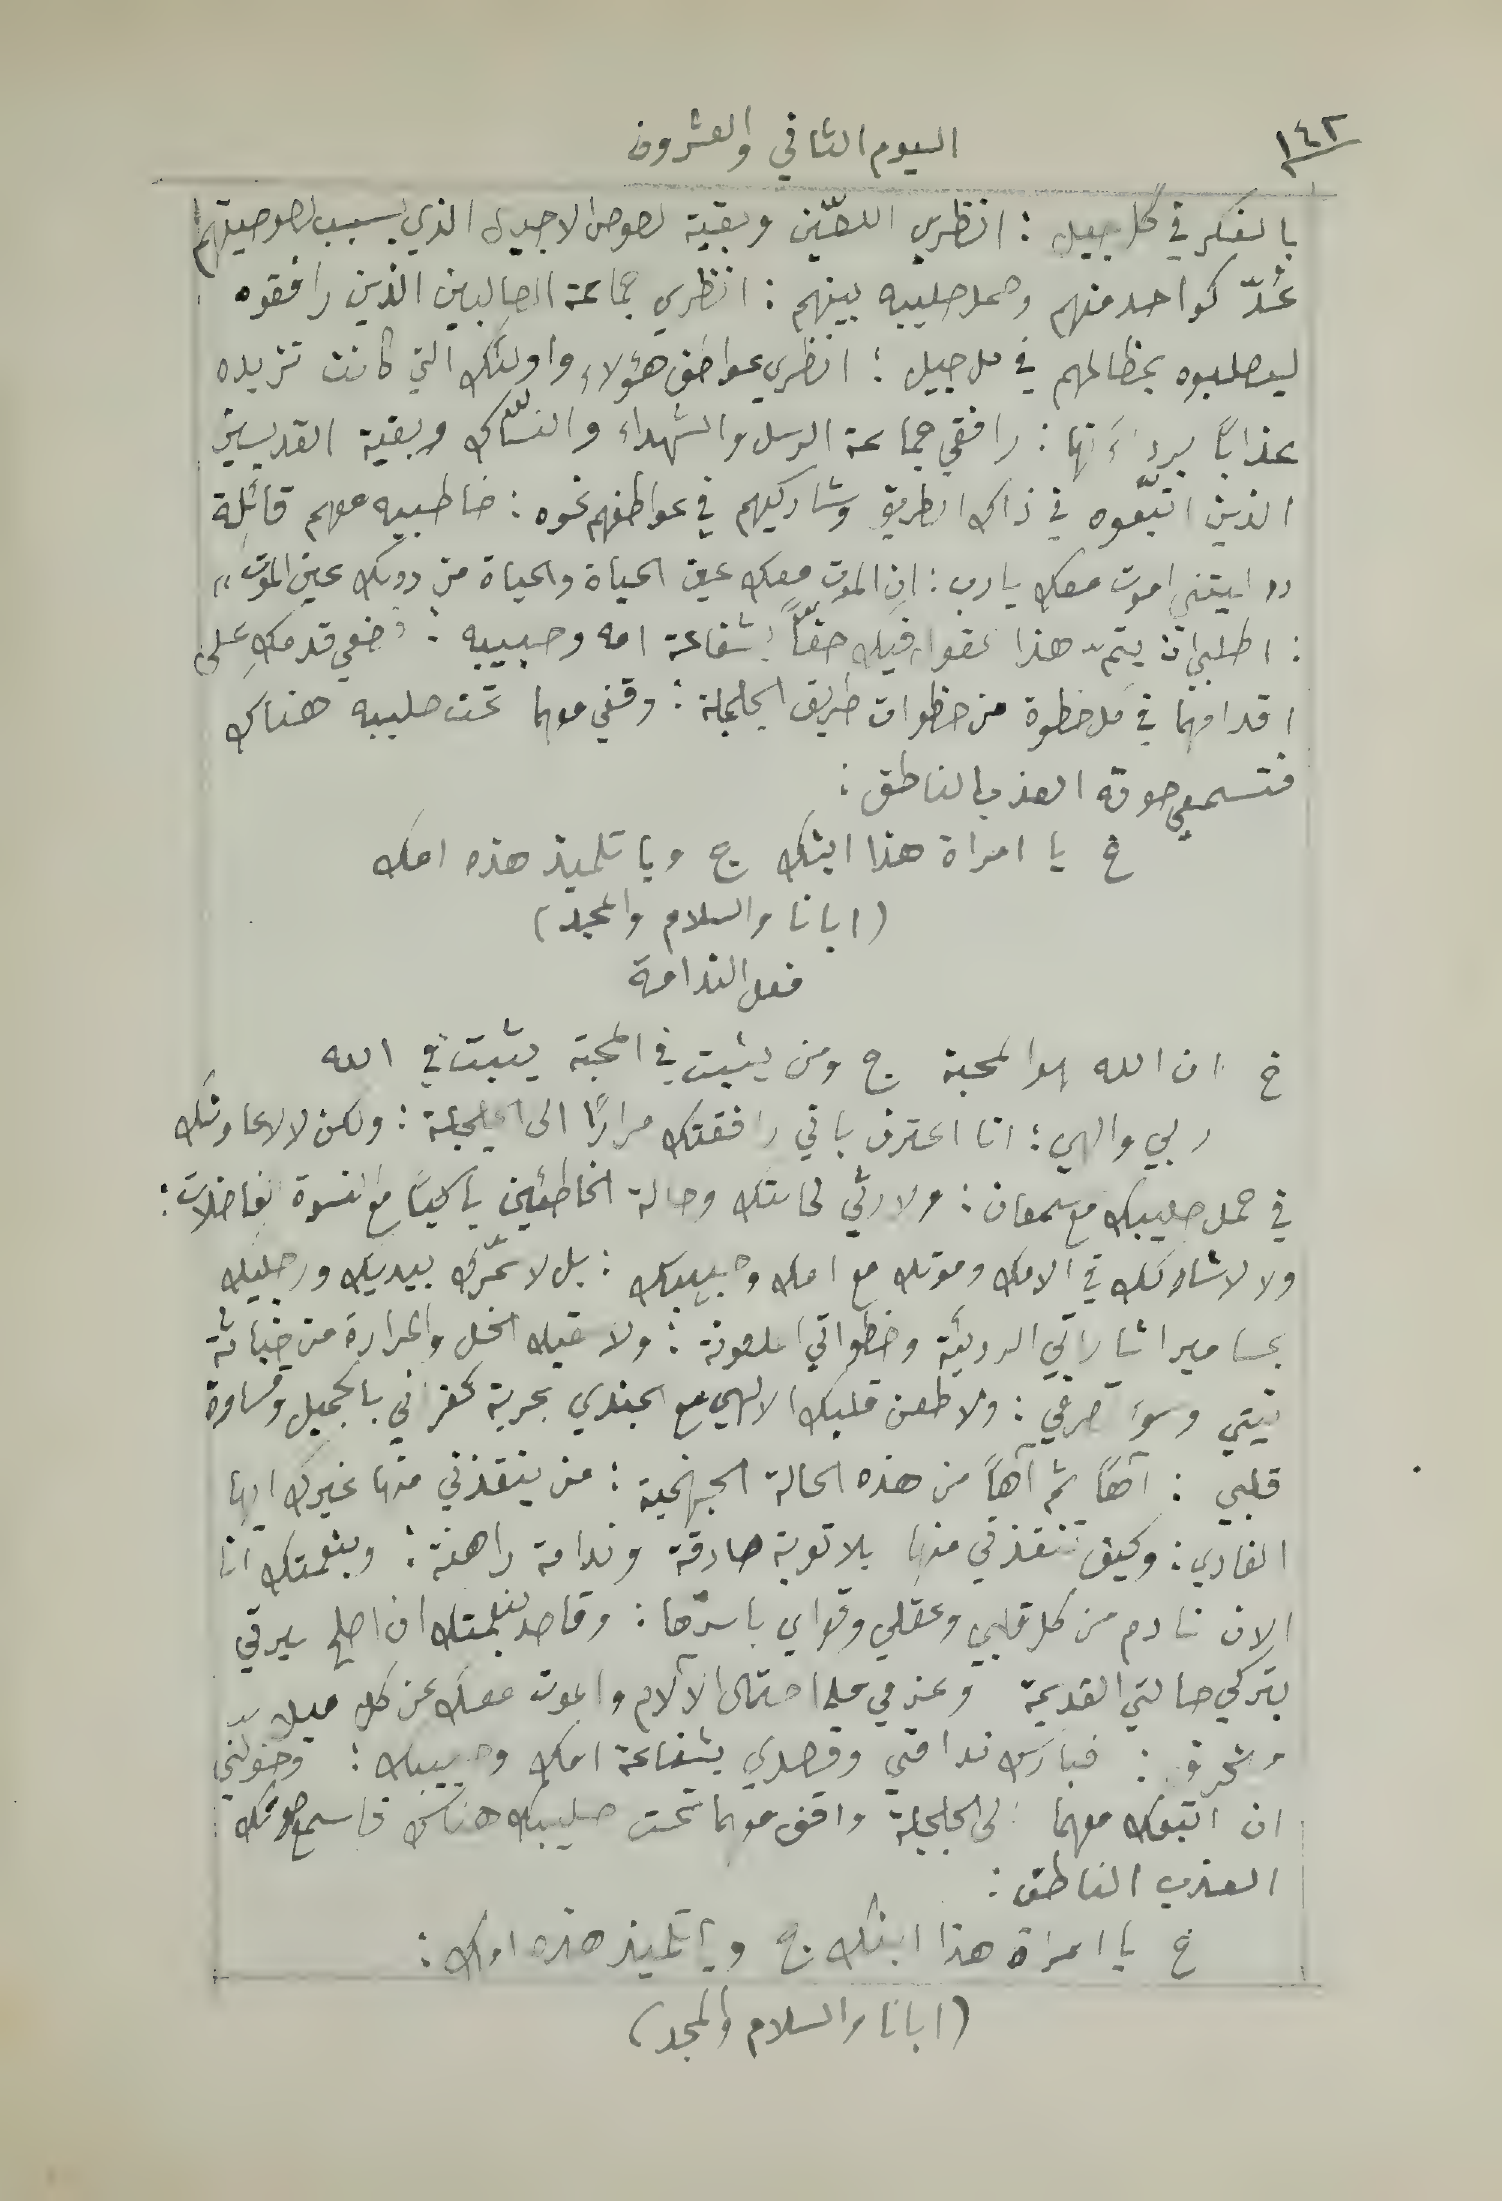 ١٤٢
اليوم الثاني والعشرون
بالفكر في كل جيل : انظري اللصّين وبقية لصوص الاجيال الذي بسبب لصوصيتهم
عُدّ كواحد منهم وحمل صليبه بينهم : انظري جماعة الصالبين الذين رافقوه
ليصلبوه بمظالمهم في كل جيل : انظري عواطف هؤلاء واولئك التي كانت تزيده
عذابًا برداءَتها : رافقي جماعة الرسل والشهداء والنسّاك وبقية القديسين
الذين اتبّعوه في ذاك الطريق وشاركيهم في عواطفهم نحوه : خاطبيه معهم قائلة
„ ليتني اموت معك يا رب : ان الموت معك عين الحياة والحياة من دونك عين الموت „
: اطلبي ان يتمّ هذا فيك حقًّا بشفاعة امه وحبيبه : ضعي قدمكِ على
اقدامهما في كل خطوة من خطوات طريق الجلجلة : وقفي معهما تحت صليبه هناك
فتسمعي صوته العذب الناطق :
خ يا امراة هذا ابنك ج ويا تلميذ هذه امك
(ابانا والسلام والمجد)
فعل الندامة
خ ان الله هو المحبة ج ومن يثبت في المحبة يثبت في الله
ربي والهي : انا اعترف باني رافقتك مرارًا الى الجلجلة : ولكن لا لاعاونك
في حمل صليبك مع سمعان : ولا لارثي لحالتك وحالة الخاطئين باكيًا مع النسوة الفاضلات :
ولا لاشاركك في الامك وموتك مع امك وحبيبك : بل لاسمّرك بيديك ورجليك
بمسامير اشاراتي الرديئة وخطواتي الملعونة : ولاسقيك الخل والمرارة من خباثة
نيتي وسوء تصرفي : ولاطعن قلبك الالهي مع الجندي بحربة كفراني بالجميل وقساوة
قلبي : آهًا ثم آهًا من هذه الحالة الجهنمية : من ينقذني منها غيرك ايها
الفادي : وكيف تنقذني منها بلا توبة صادقة وندامة راهنة : وبنعمتك انا
الان نادم من كل قلبي وعقلي وقواي باسرّها : وقاصد بنعمتك ان اصلح سيرتي
بتركي حالتي القديمة وعزمي على احتمال الآلام والموت معك عن كل ميل
منحرف : فبارك ندامتي وقصدي بشفاعة امك وحبيبك : وخولّني
ان اتبعك معهما الى الجلجلة واقف معهما تحت صليبك هناك فاسمع صوتك
العذب الناطق :
خ يا امراة هذا ابنك ج ويا تلميذ هذه امك :
(ابانا والسلام والمجد)